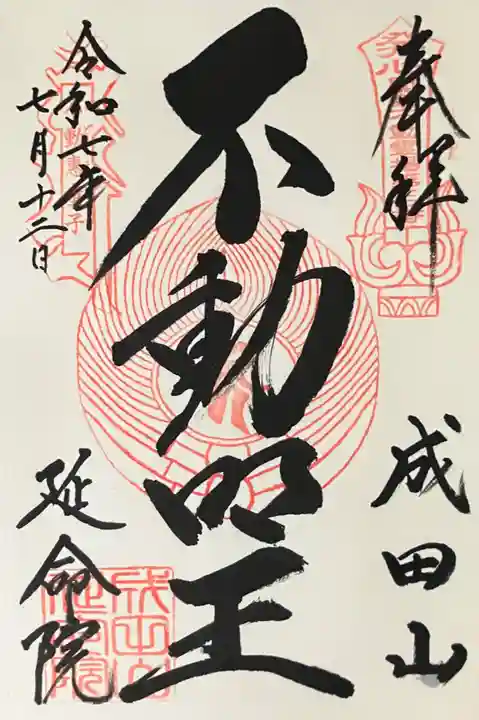 奉拝
成田山
不動明王
令和七年
七月十二日
延命院